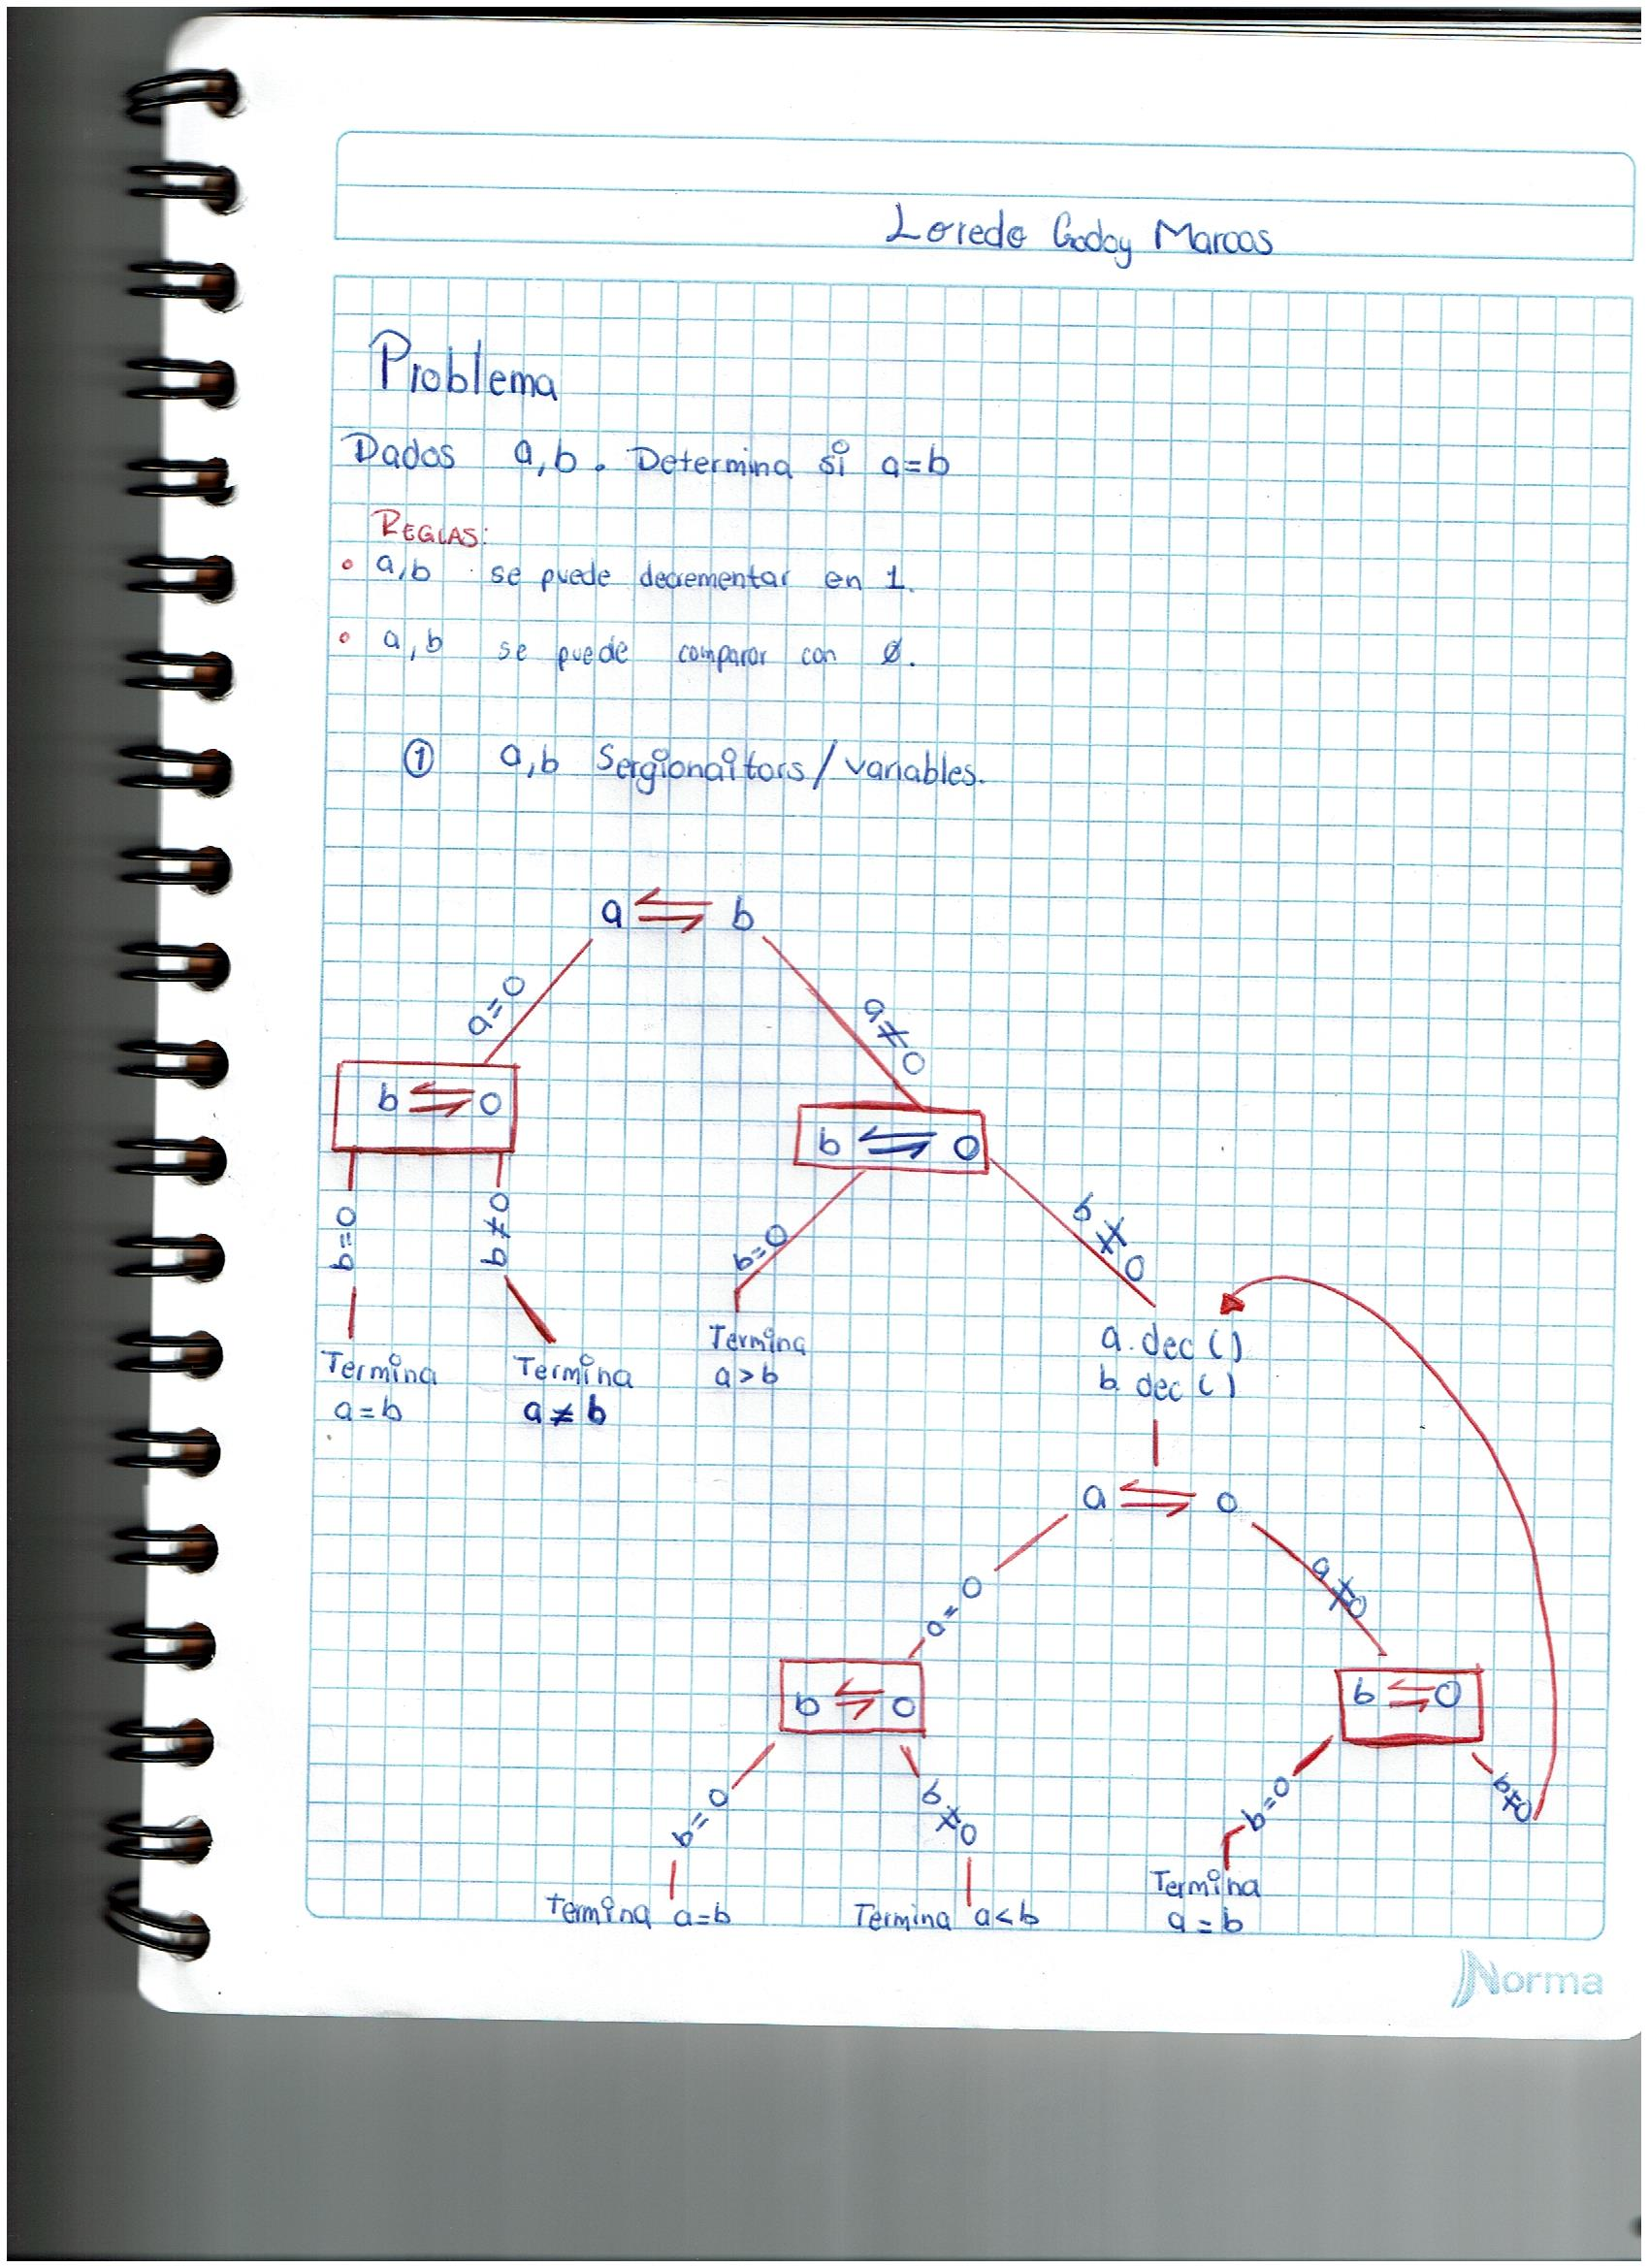 Loredo Godoy Marcos
Problema
Dados a,b. Determina si a=b
REGLAS:
• a,b se puede decrementar en 1.
• a,b se puede comparar con Ø.
① a,b Sergionaitors/variables.
a ⇌ b
a=0 a≠0
b ⇌ 0
b ⇌ 0
b=0 b≠0 b=0 b≠0
Termina a=b
Termina a≠b
Termina a>b
a.dec()
b.dec()
a ⇌ 0
a=0 a≠0
b ⇌ 0 b ⇌ 0
b=0 b≠0 b=0 b≠0
Termina a=b
Termina a<b
Termina
a=b
Norma